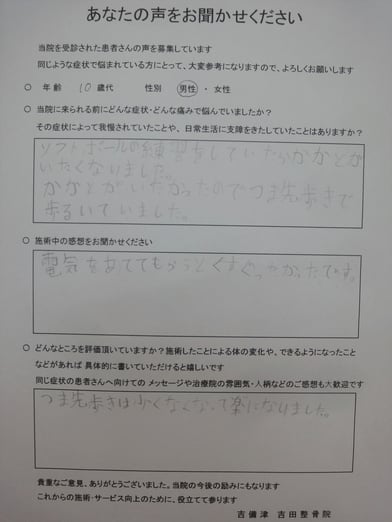 あなたの声をお聞かせください
当院を受診された患者さんの声を募集しています
同じような症状で悩まれている方にとって、大変参考になりますので、よろしくお願いします
○ 年齢 10 歳代 性別 男性 ・ 女性
○ 当院に来られる前にどんな症状・どんな痛みで悩んでいましたか？
その症状によって我慢されていたことや、日常生活に支障をきたしていたことはありますか？
ソフトボールの練習をしていたらかかとが
いたくなりました。
かかとがいたかったのでつま先歩きで
歩るいていました。
○ 施術中の感想をお聞かせください
電気をあててもらうとくすぐったかったです。
○ どんなところを評価頂いていますか？施術したことによる体の変化や、できるようになったこと
などがあれば 具体的に書いていただけると嬉しいです
同じ症状の患者さんへ向けての メッセージや治療院の雰囲気・人柄などのご感想も大歓迎です
つま先歩きは少くなくなって楽になりました。
貴重なご意見、ありがとうございました。当院の今後の励みにもなります
これからの施術・サービス向上のために、役立てて参ります
吉備津 吉田整骨院